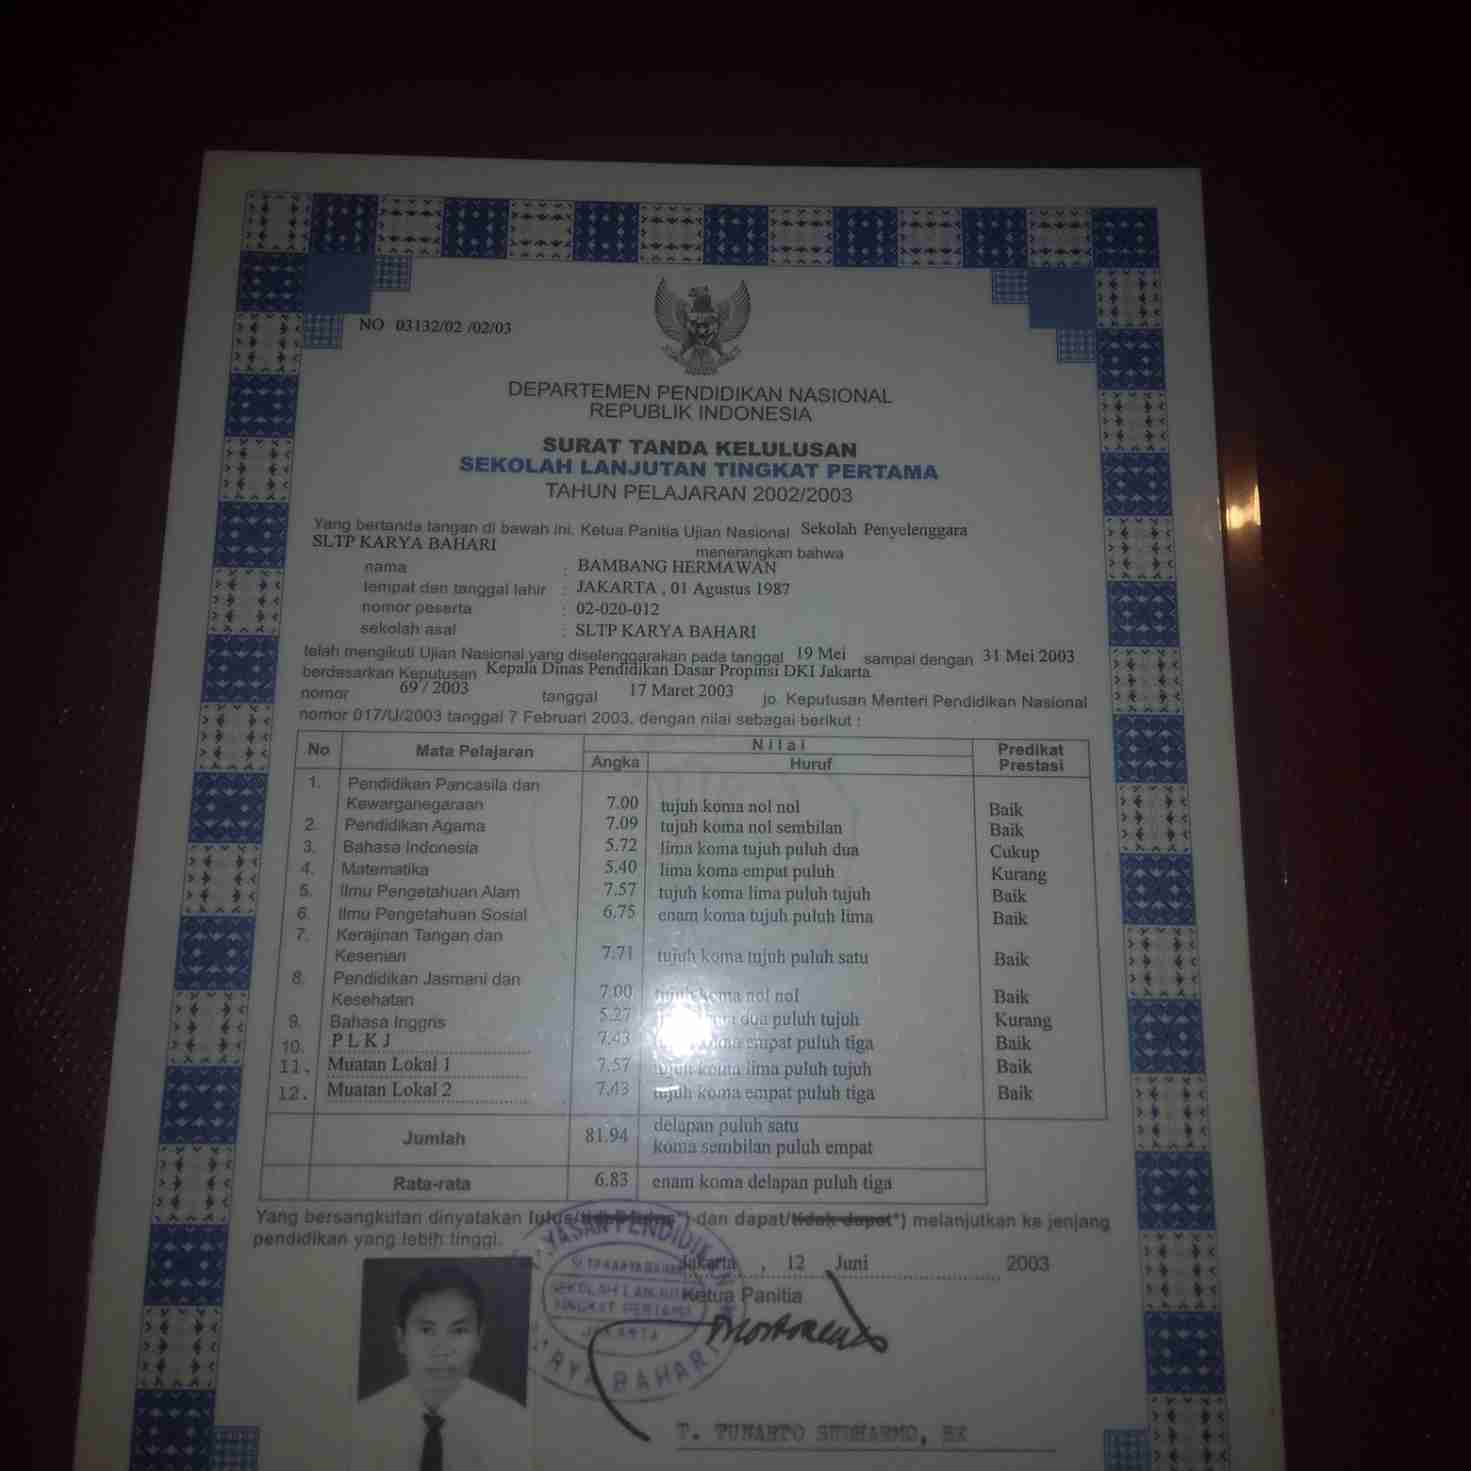 NO 03132/02 /02/03
DEPARTEMEN PENDIDIKAN NASIONAL
REPUBLIK INDONESIA
SURAT TANDA KELULUSAN
SEKOLAH LANJUTAN TINGKAT PERTAMA
TAHUN PELAJARAN 2002/2003
Yang bertanda tangan di bawah ini, Ketua Panitia Ujian Nasional Sekolah Penyelenggara
SLTP KARYA BAHARI menerangkan bahwa
nama : BAMBANG HERMAWAN
tempat dan tanggal lahir : JAKARTA , 01 Agustus 1987
nomor peserta : 02-020-012
sekolah asal : SLTP KARYA BAHARI
telah mengikuti Ujian Nasional yang diselenggarakan pada tanggal 19 Mei sampai dengan 31 Mei 2003
berdasarkan Keputusan Kepala Dinas Pendidikan Dasar Propinsi DKI Jakarta
nomor 69 / 2003 tanggal 17 Maret 2003 jo. Keputusan Menteri Pendidikan Nasional
nomor 017/U/2003 tanggal 7 Februari 2003, dengan nilai sebagai berikut :
No Mata Pelajaran Nilai Predikat Prestasi
Angka Huruf
1. Pendidikan Pancasila dan
Kewarganegaraan 7.00 tujuh koma nol nol Baik
2. Pendidikan Agama 7.09 tujuh koma nol sembilan Baik
3. Bahasa Indonesia 5.72 lima koma tujuh puluh dua Cukup
4. Matematika 5.40 lima koma empat puluh Kurang
5. Ilmu Pengetahuan Alam 7.57 tujuh koma lima puluh tujuh Baik
6. Ilmu Pengetahuan Sosial 6.75 enam koma tujuh puluh lima Baik
7. Kerajinan Tangan dan
Kesenian 7.71 tujuh koma tujuh puluh satu Baik
8. Pendidikan Jasmani dan
Kesehatan 7.00 tujuh koma nol nol Baik
9. Bahasa Inggris 5.27 dua puluh tujuh Kurang
10. P L K J 7.43 koma empat puluh tiga Baik
11. Muatan Lokal 1 7.57 tujuh koma lima puluh tujuh Baik
12. Muatan Lokal 2 7.43 tujuh koma empat puluh tiga Baik
Jumlah 81.94 delapan puluh satu
koma sembilan puluh empat
Rata-rata 6.83 enam koma delapan puluh tiga
Yang bersangkutan dinyatakan lulus/tidak lulus*) dan dapat/tidak dapat*) melanjutkan ke jenjang
pendidikan yang lebih tinggi.
Jakarta , 12 Juni 2003
Ketua Panitia
YAYASAN PENDIDIKAN
SLTP KARYA BAHARI
SEKOLAH LANJUTAN
TINGKAT PERTAMA
JAKARTA
KARYA BAHARI
T. TUNARTO SUDHARMO, BE